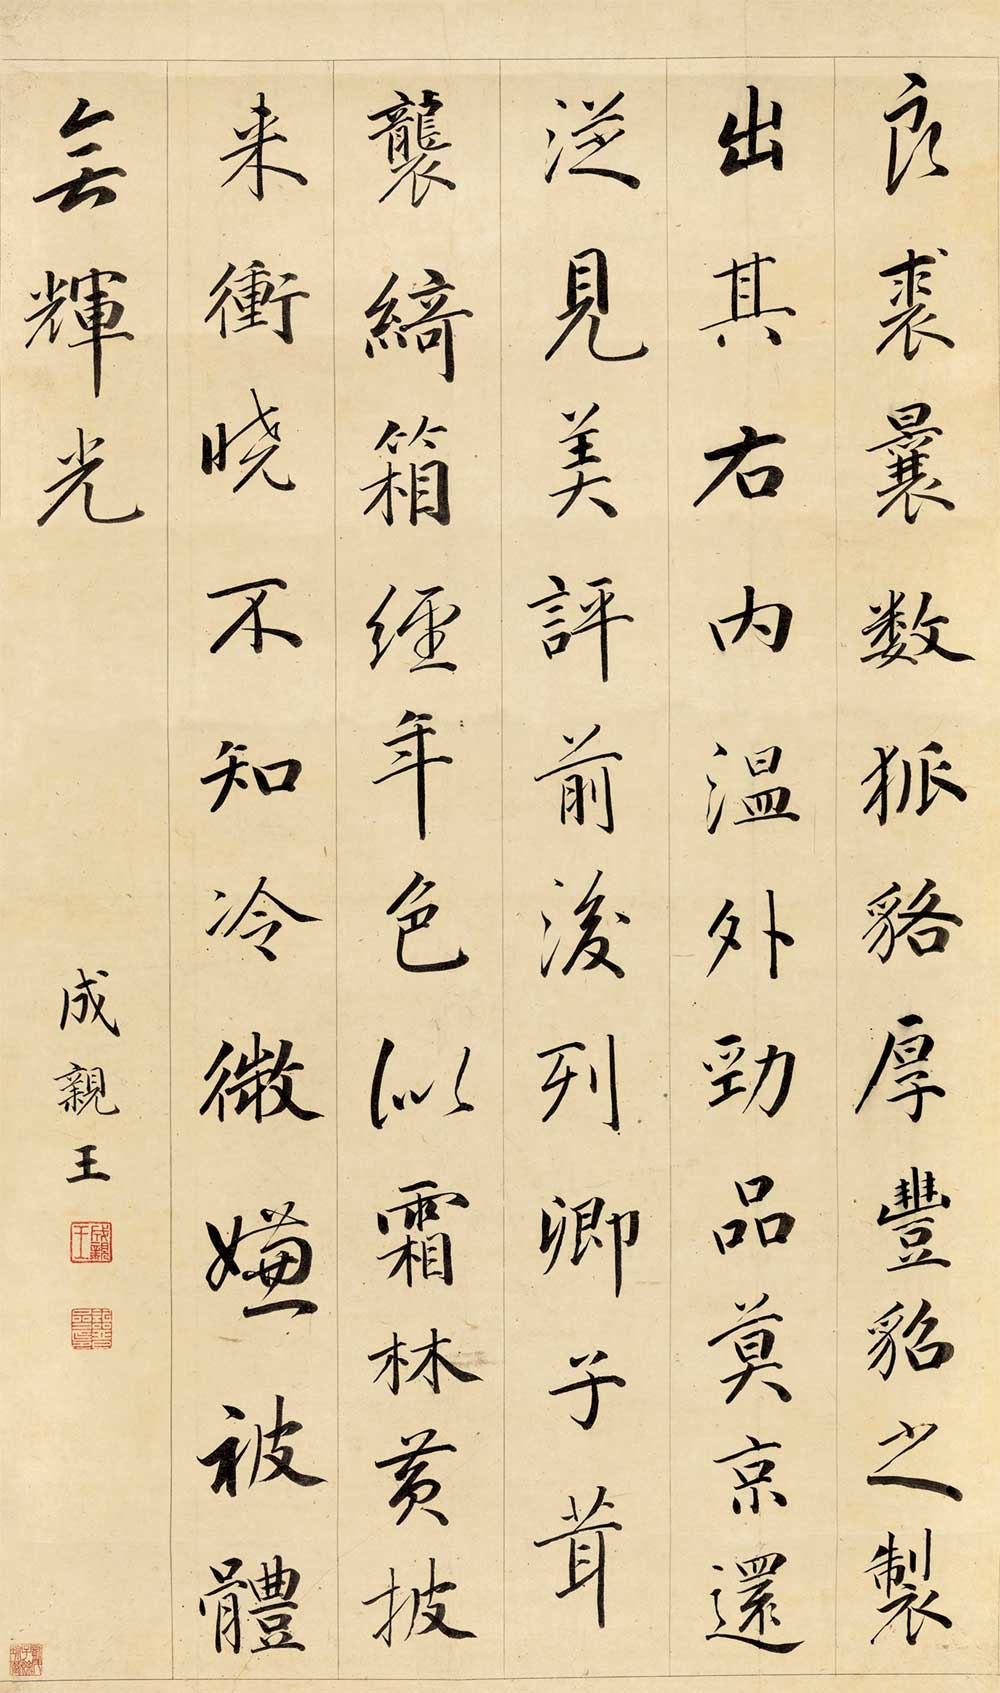 良裘曩数狐貉厚豐貂之製
出其右内温外勁品莫京還
從見美評前後列卿子茸
襲綺箱經年色似霜林黄披
来衝晓不知冷微嫌被體
無輝光
成親王
成親王